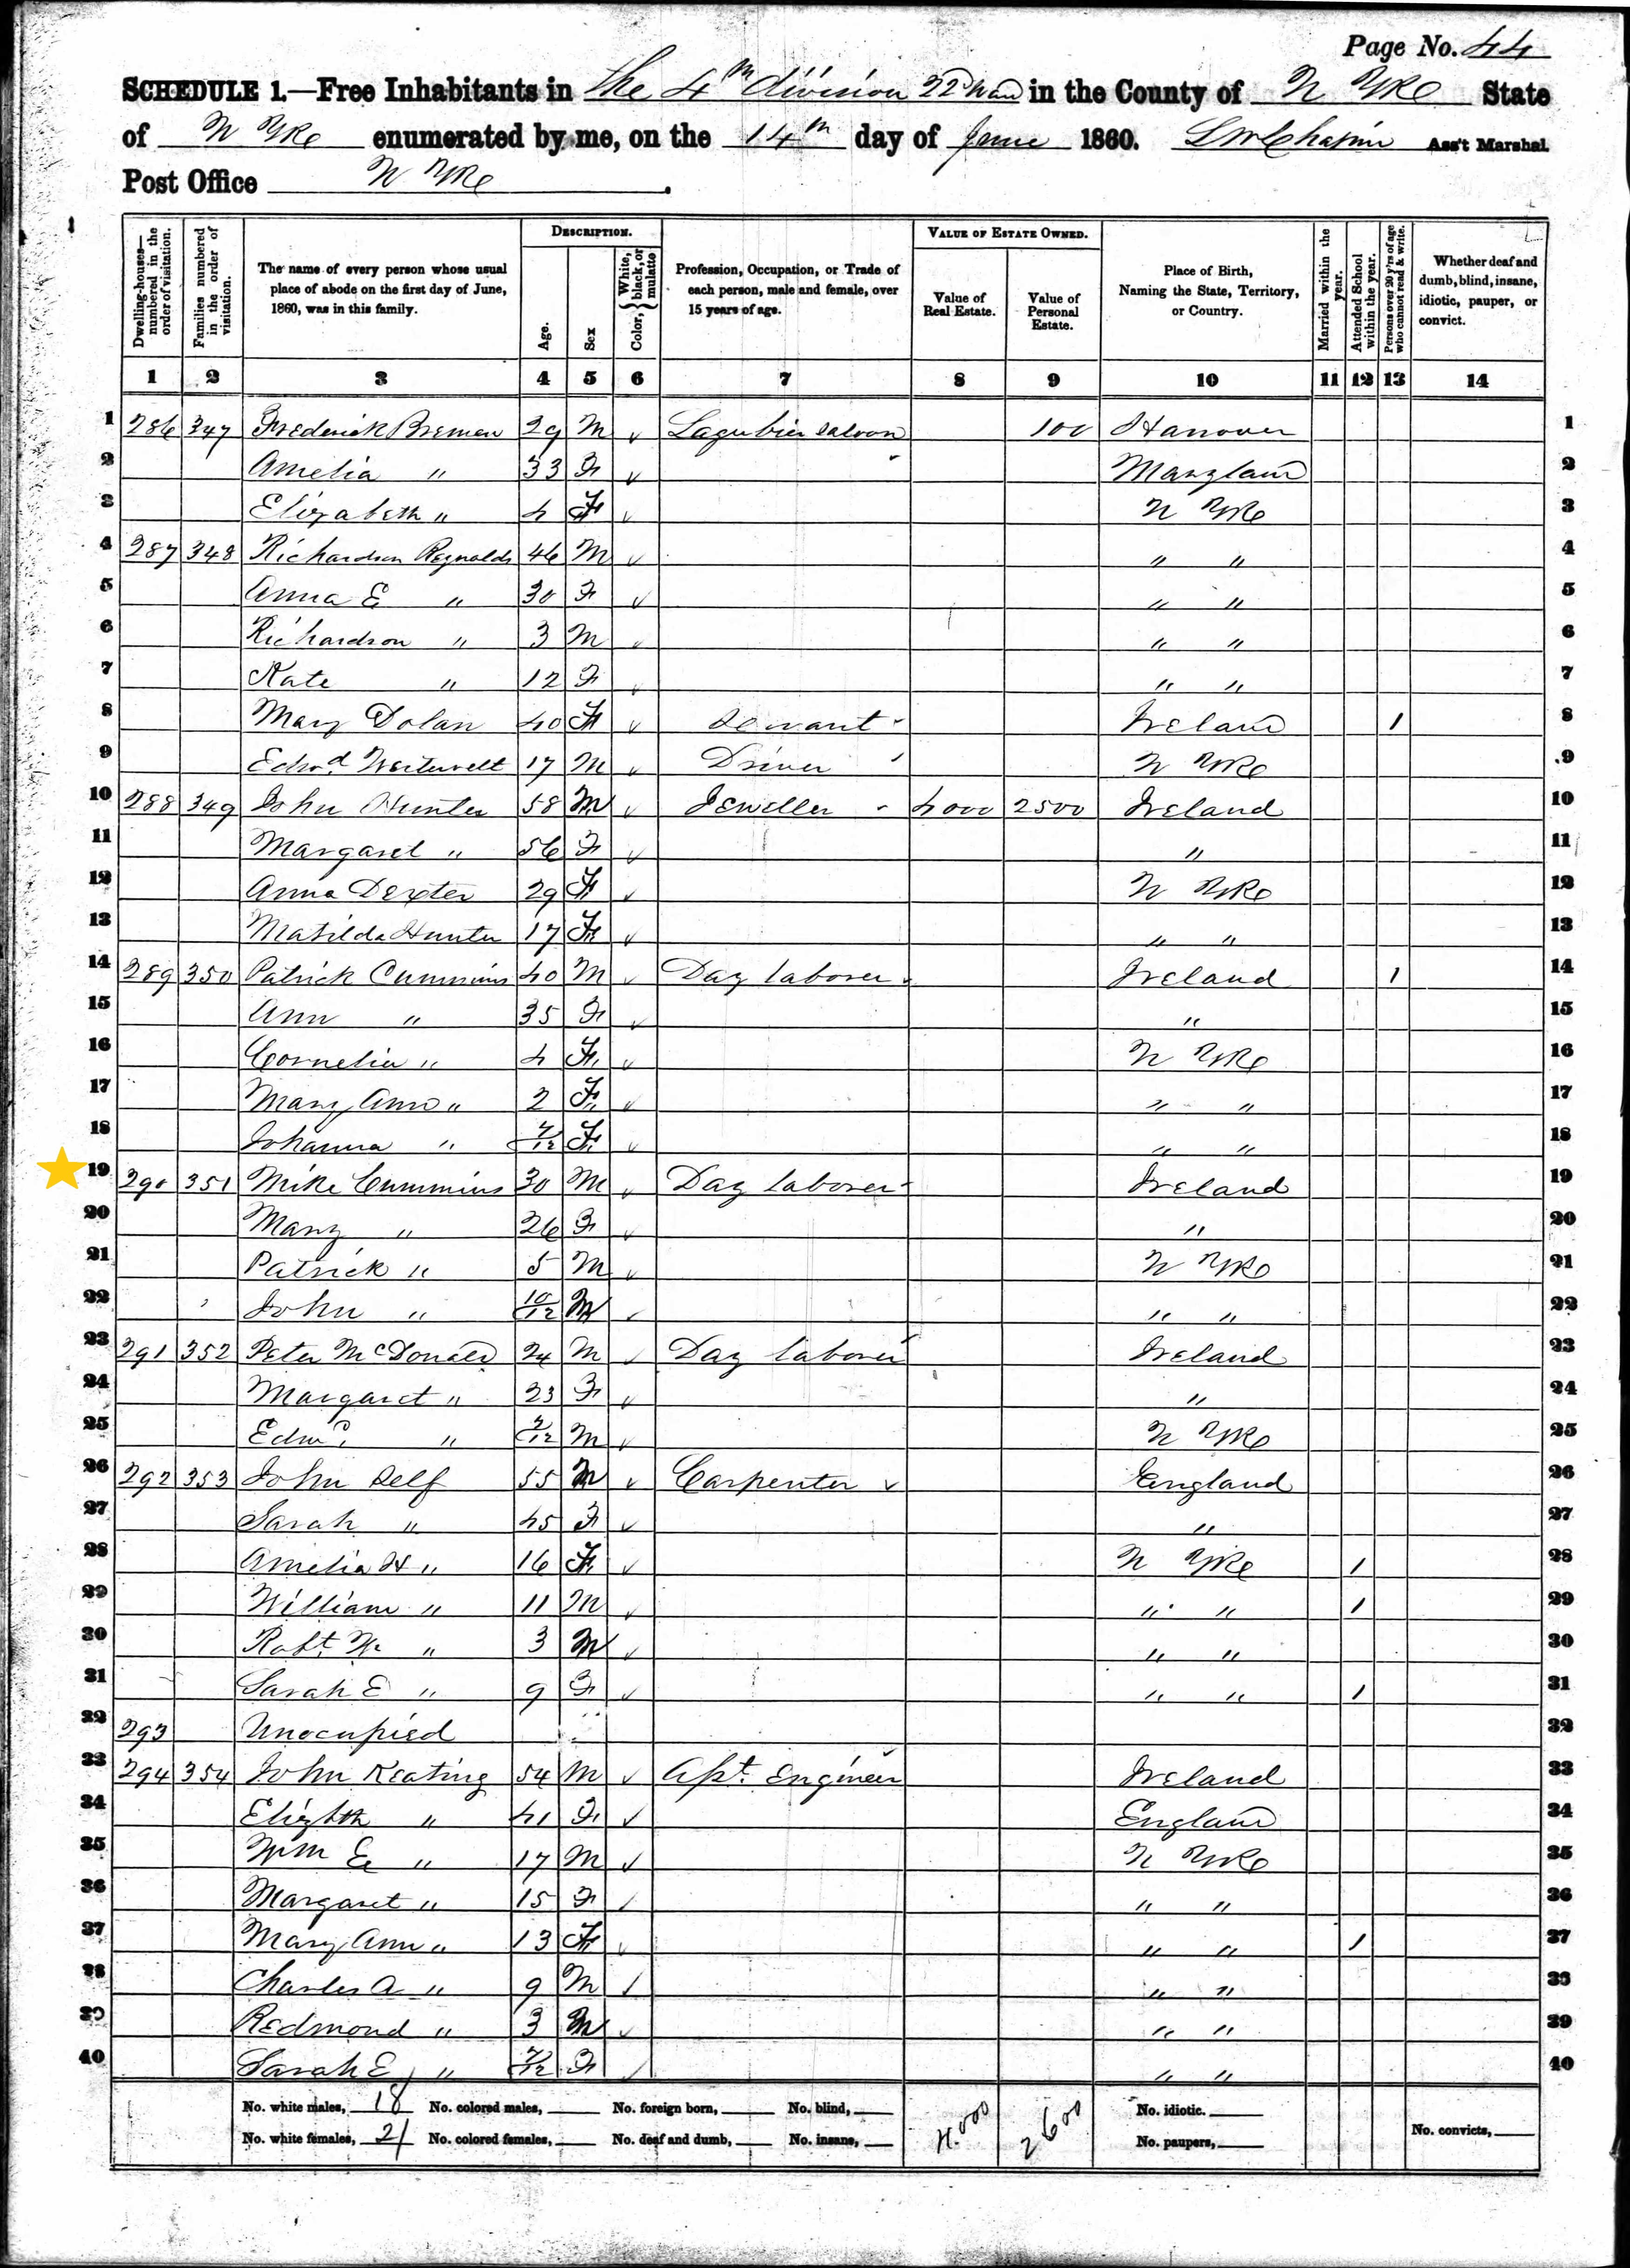 Page No. 44
SCHEDULE 1.—Free Inhabitants in the 4th division 22 Ward in the County of N York State
of N York enumerated by me, on the 14th day of June 1860. L W Chapin Ass't Marshal.
Post Office N York.
Dwelling-houses—numbered in the order of visitation.
Families numbered in the order of visitation.
The name of every person whose usual place of abode on the first day of June, 1860, was in this family.
DESCRIPTION.
Age.
Sex
Color, White, black, or mulatto
Profession, Occupation, or Trade of each person, male and female, over 15 years of age.
VALUE OF ESTATE OWNED.
Value of Real Estate.
Value of Personal Estate.
Place of Birth, Naming the State, Territory, or Country.
Married within the year.
Attended School within the year.
Persons over 20 y'rs of age who cannot read & write.
Whether deaf and dumb, blind, insane, idiotic, pauper, or convict.
1 2 3 4 5 6 7 8 9 10 11 12 13 14
1 286 347 Frederick Bremen 29 M Lagubier saloon 100 Hanover 1
2 Amelia " 33 F Maryland 2
3 Elizabeth " 4 F N York 3
4 287 348 Richardson Reynolds 46 M " " 4
5 Anna E " 30 F " " 5
6 Richardson " 3 M " " 6
7 Kate " 12 F " " 7
8 Mary Dolan 40 F Servant Ireland 1 8
9 Edwd. Westervelt 17 M Driver N York 9
10 288 349 John Hunter 58 M Jeweller 4000 2500 Ireland 10
11 Margaret " 56 F " 11
12 Anna Dexter 29 F N York 12
13 Matilda Hunter 17 F " " 13
14 289 350 Patrick Cummins 40 M Day laborer Ireland 1 14
15 Ann " 35 F " 15
16 Cornelia " 4 F N York 16
17 Mary Ann " 2 F " " 17
18 Johanna " /12 F " " 18
19 290 351 Mike Cummins 30 M Day laborer Ireland 19
20 Mary " 26 F " 20
21 Patrick " 5 M N York 21
22 John " 10/12 M " " 22
23 291 352 Peter McDonald 24 M Day laborer Ireland 23
24 Margaret " 23 F " 24
25 Edwd. " /12 M N York 25
26 292 353 John Self 55 M Carpenter England 26
27 Sarah " 45 F " 27
28 Amelia H " 16 F N York 1 28
29 William " 11 M " " 1 29
30 Robt. W " 3 M " " 30
31 Sarah E " 9 F " " 1 31
32 293 Unocupied 32
33 294 354 John Keating 54 M Asst. Engineer Ireland 33
34 Elizbth " 41 F England 34
35 Wm E " 17 M N York 35
36 Margaret " 15 F " " 36
37 Mary Ann " 13 F " " 1 37
38 Charles A " 9 M " " 38
39 Redmond " 3 M " " 39
40 Sarah E " /12 F " " 40
No. white males, 18 No. colored males, No. foreign born, No. blind, 4.000 2600 No. idiotic.
No. white females, 21 No. colored females, No. deaf and dumb, No. insane, No. paupers, No. convicts,